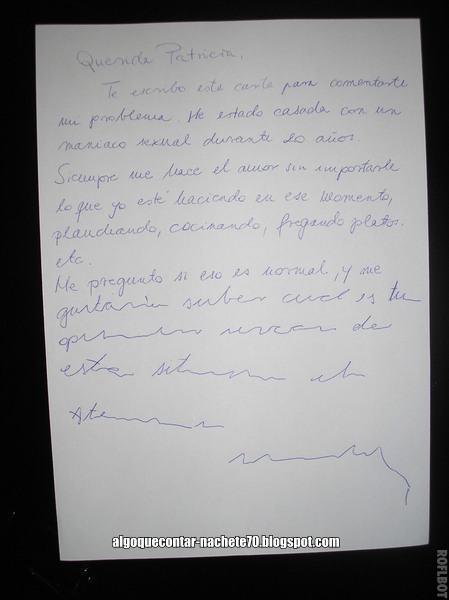 Querida Patricia,
Te escribo esta carta para comentarte
mi problema. He estado casada con un
maniaco sexual durante 20 años.
Siempre me hace el amor sin importarle
lo que yo esté haciendo en ese momento,
planchando, cocinando, fregando platos.
etc.
Me pregunto si eso es normal, y me
gustaría saber cual es tu
de
esta
algoquecontar-nachete70.blogspot.com
ROFLBOT